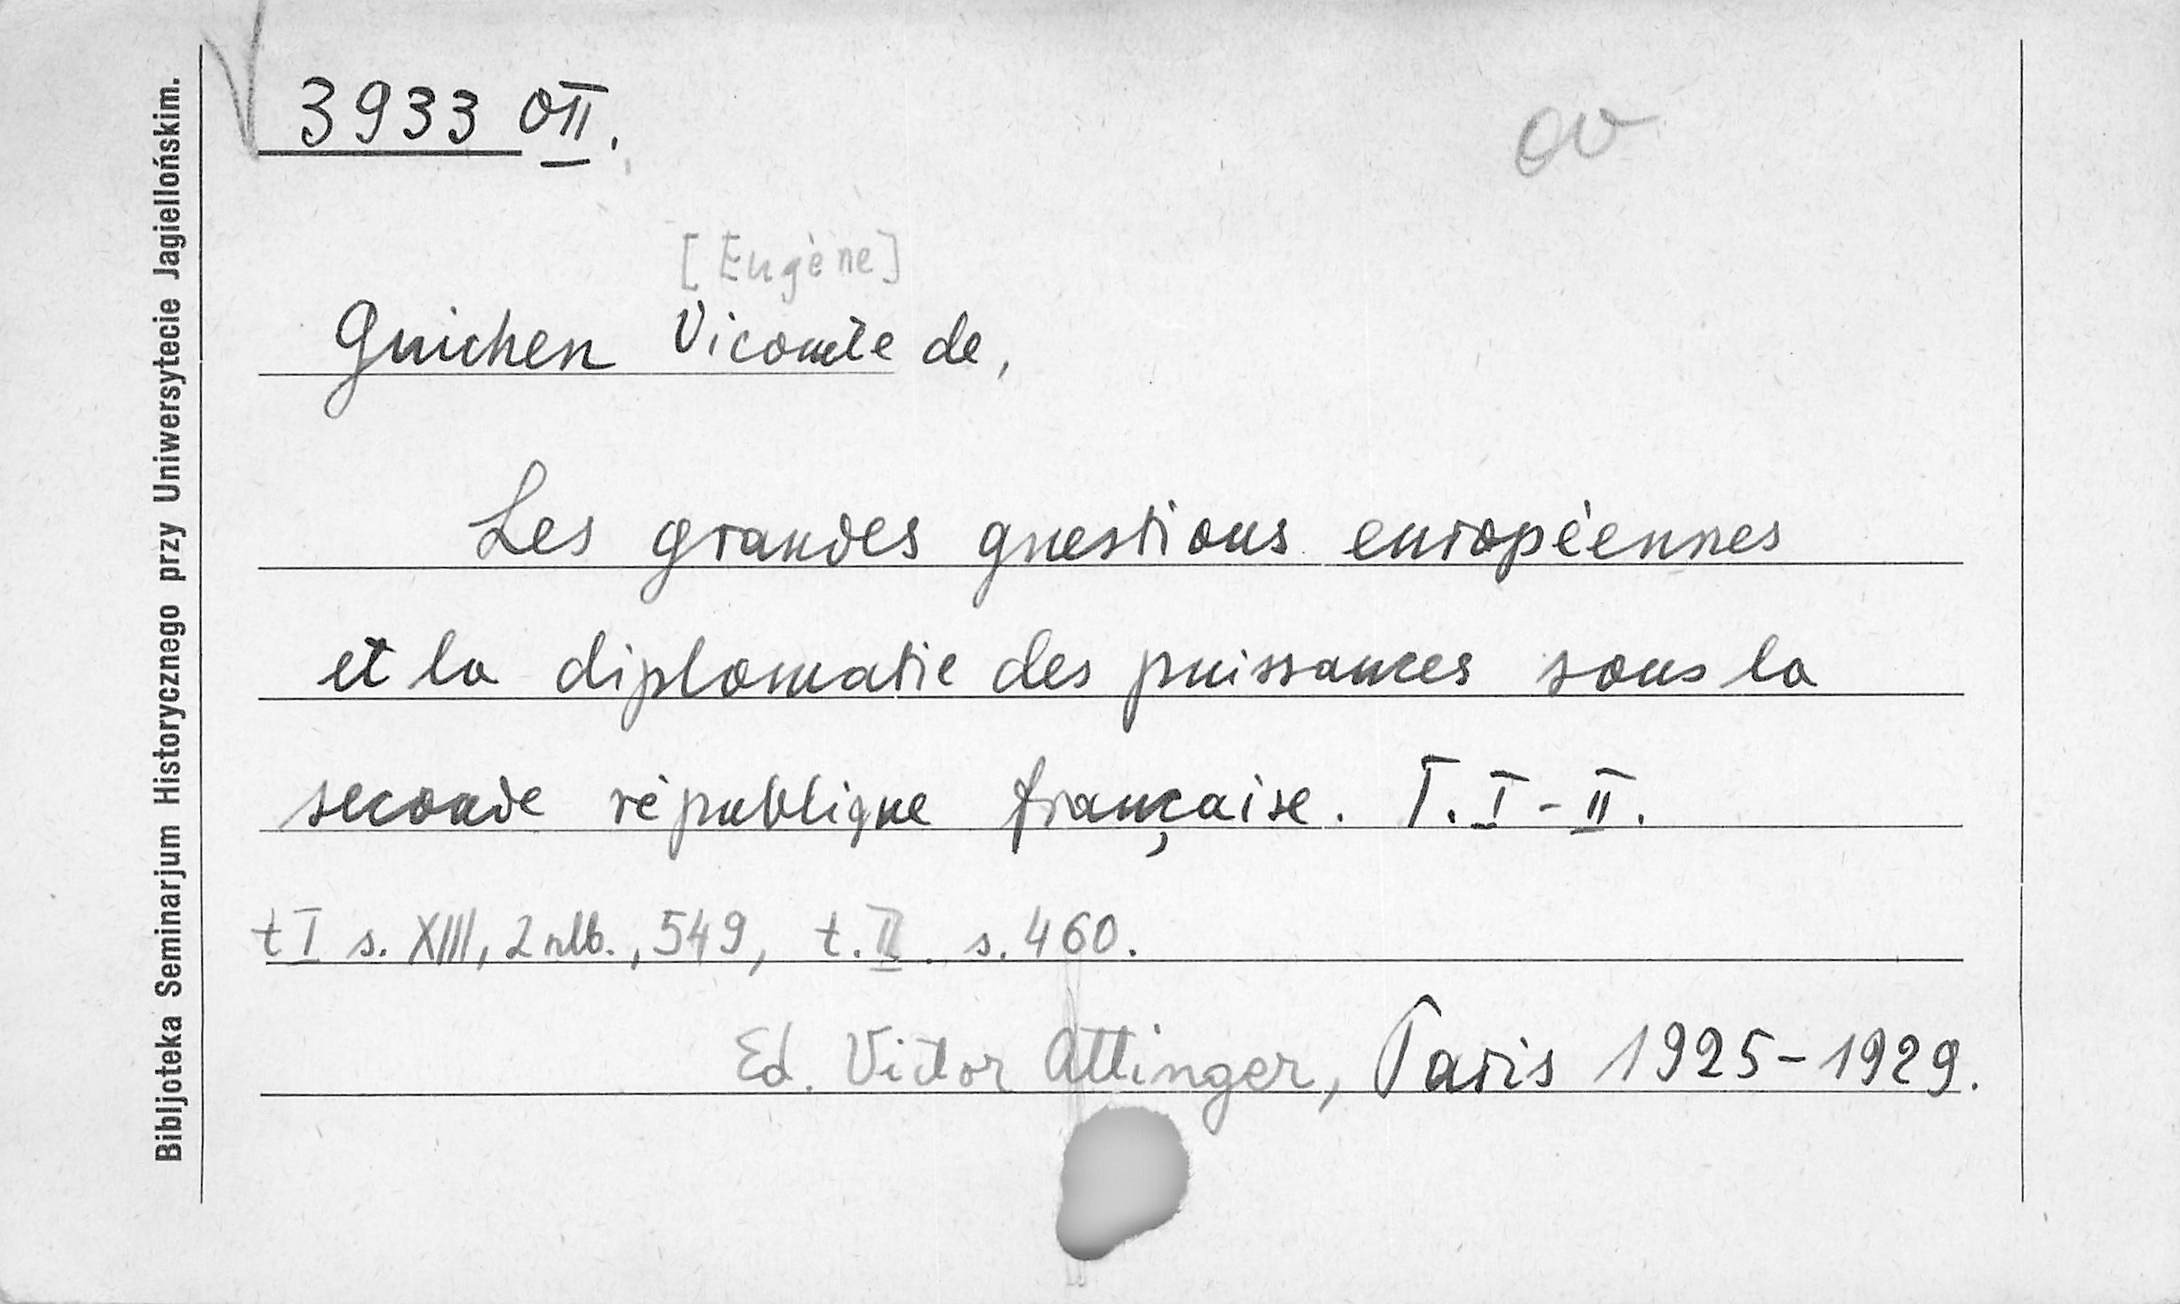 3933 OII.
ov
[Eugène]
Guichen Vicomte de,
Les grandes questions européennes
et la diplomatie des puissances sous la
seconde république française. T. I-II.
t I s. XIII, 2 nlb., 549, t. II. s. 460.
Ed. Victor Attinger, Paris 1925-1929.
Bibljoteka Seminarjum Historycznego przy Uniwersytecie Jagiellońskim.